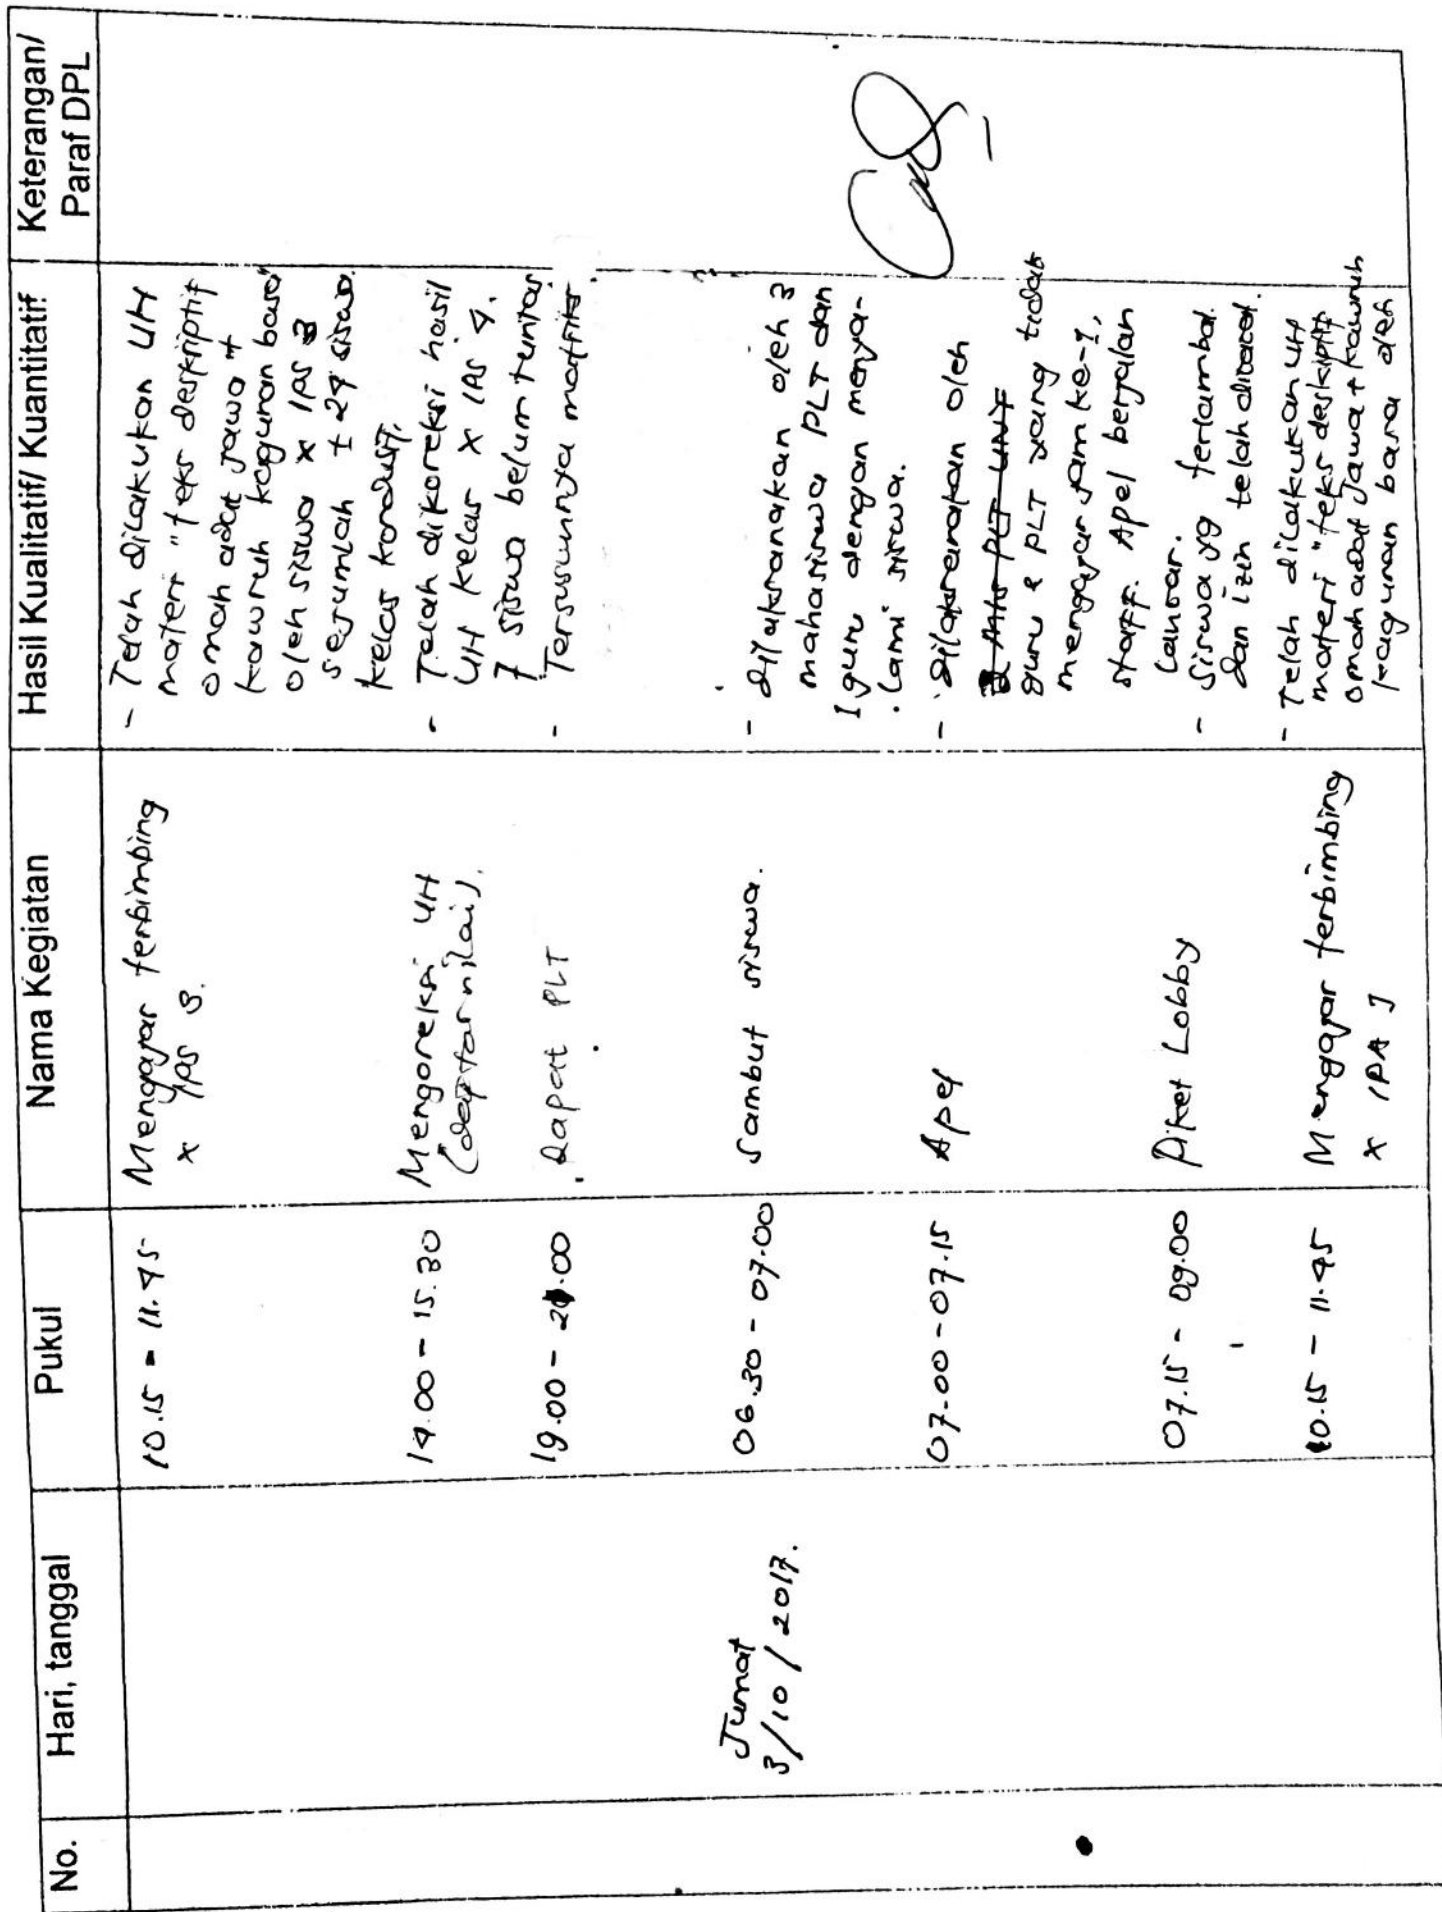 No.
Hari, tanggal
Pukul
Nama Kegiatan
Hasil Kualitatif/ Kuantitatif
Keterangan/
Paraf DPL
10.15 - 11.45
Mengajar terbimbing
X IPS 3.
- Telah dilakukan UH
materi "teks deskriptif
omah adat jawa +
kawruh kagunan basa"
oleh siswa X IPS 3
sejumlah ± 24 siswa.
kelas kondusif.
14.00 - 15.30
Mengoreksi UH
(daftar nilai).
- Telah dikoreksi hasil
UH kelas X IPS 4.
7 siswa belum tuntas
19.00 - 21.00
Rapat PLT
- Tersusunnya matriks
Jumat
3/10/2017.
06.30 - 07.00
Sambut siswa.
- dilaksanakan oleh 3
mahasiswa PLT dan
1 guru dengan menya-
lami siswa.
07.00 - 07.15
Apel
- dilaksanakan oleh
PLT UNY
guru & PLT yang tidak
mengajar jam ke-1,
staff. Apel berjalan
lancar.
07.15 - 09.00
Piket Lobby
- Siswa yg terlambat
dan izin telah dicatat.
10.15 - 11.45
Mengajar terbimbing
X IPA 1
- Telah dilakukan UH
materi "teks deskriptif
omah adat Jawa + kawruh
kagunan basa oleh